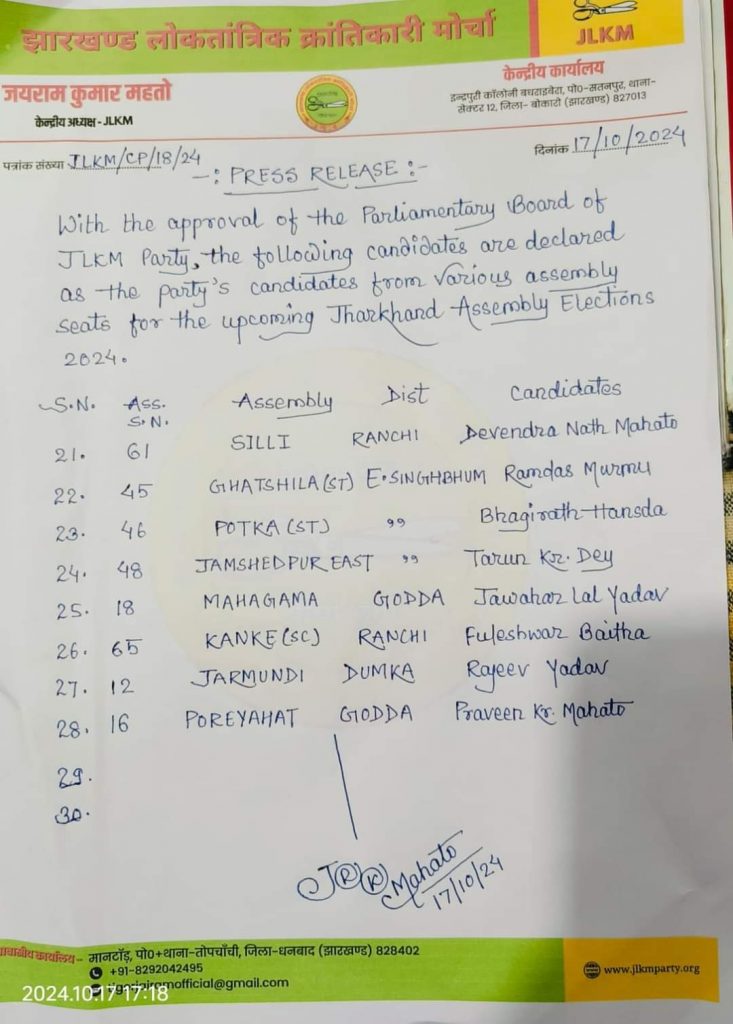 झारखण्ड लोकतांत्रिक क्रांतिकारी मोर्चा
JLKM
जयराम कुमार महतो
केन्द्रीय अध्यक्ष - JLKM
केन्द्रीय कार्यालय
इन्द्रपुरी कॉलोनी पो०-सतनपुर, थाना-
सेक्टर 12, जिला- बोकारो (झारखण्ड) 827013
पत्रांक संख्या JLKM/CP/18/24
दिनांक 17/10/2024
-: PRESS RELEASE :-
With the approval of the Parliamentary Board of
JLKM Party, the following candidates are declared
as the party's candidates from various assembly
seats for the upcoming Jharkhand Assembly Elections
2024.
S.N. Ass. S.N. Assembly Dist Candidates
21. 61 SILLI RANCHI Devendra Nath Mahato
22. 45 GHATSHILA (ST) E.SINGHBHUM Ramdas Murmu
23. 46 POTKA (ST) ,, Bhagirath Hansda
24. 48 JAMSHEDPUR EAST ,, Tarun Kr. Dey
25. 18 MAHAGAMA GODDA Jawahar Lal Yadav
26. 65 KANKE (SC) RANCHI Fuleshwar Baitha
27. 12 JARMUNDI DUMKA Rajeev Yadav
28. 16 POREYAHAT GODDA Praveen Kr. Mahato
29.
30.
JRK Mahato
17/10/24
कार्यालय - मानटाँड़, पो०+थाना-तोपचाँची, जिला-धनबाद (झारखण्ड) 828402
+91-8292042495
www.jlkmparty.org
2024.10.17 17:18